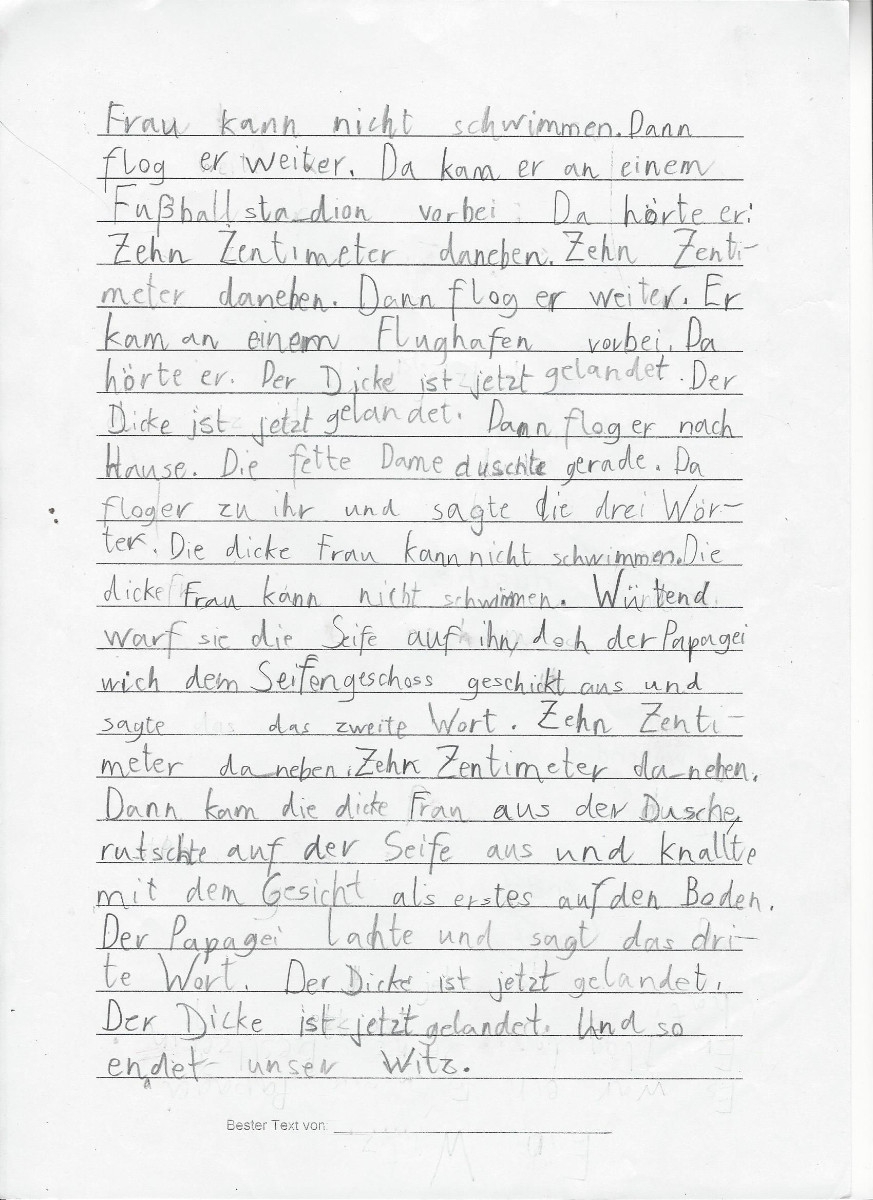 Frau kann nicht schwimmen. Dann
flog er weiter. Da kam er an einem
Fußballstadion vorbei. Da hörte er:
Zehn Zentimeter daneben. Zehn Zenti-
meter daneben. Dann flog er weiter. Er
kam an einem Flughafen vorbei. Da
hörte er. Der Dicke ist jetzt gelandet. Der
Dicke ist jetzt gelandet. Dann flog er nach
Hause. Die fette Dame duschte gerade. Da
flog er zu ihr und sagte die drei Wör-
ter. Die dicke Frau kann nicht schwimmen. Die
dicke Frau kann nicht schwimmen. Würtend
warf sie die Seife auf ihn, doch der Papagei
wich dem Seifengeschoss geschickt aus und
sagte das zweite Wort. Zehn Zenti-
meter daneben. Zehn Zentimeter daneben.
Dann kam die dicke Frau aus der Dusche,
rutschte auf der Seife aus und knallte
mit dem Gesicht als erstes auf den Boden.
Der Papagei lachte und sagt das dri-
te Wort. Der Dicke ist jetzt gelandet.
Der Dicke ist jetzt gelandet. Und so
endet unser Witz.
Bester Text von: